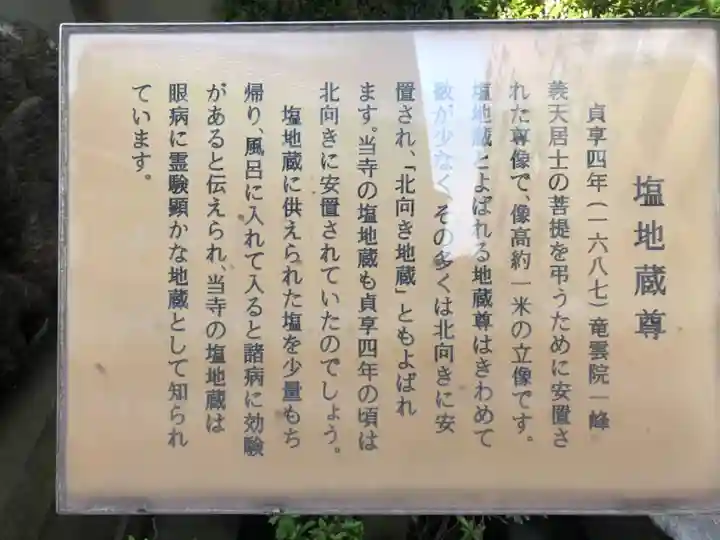 塩地蔵尊
貞享四年（一六八七）竜雲院一峰
義天居士の菩提を弔うために安置さ
れた尊像で、像高約一米の立像です。
塩地蔵とよばれる地蔵尊はきわめて
数が少なく、その多くは北向きに安
置され、「北向き地蔵」ともよばれ
ます。当寺の塩地蔵も貞享四年の頃は
北向きに安置されていたのでしょう。
塩地蔵に供えられた塩を少量もち
帰り、風呂に入れて入ると諸病に効験
があると伝えられ、当寺の塩地蔵は
眼病に霊験顕かな地蔵として知られ
ています。